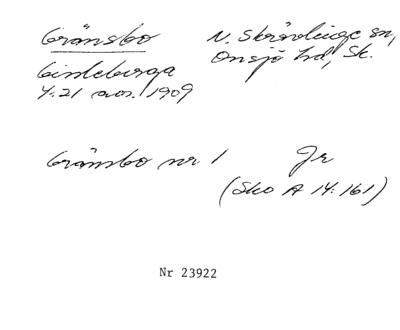 Gränsbo N. Skrävlinge sn,
Lindeberga Onsjö hd, Sk.
4:21 avs. 1909
Gränsbo nr 1 Jr
(Sko A 14:161)
Nr 23922